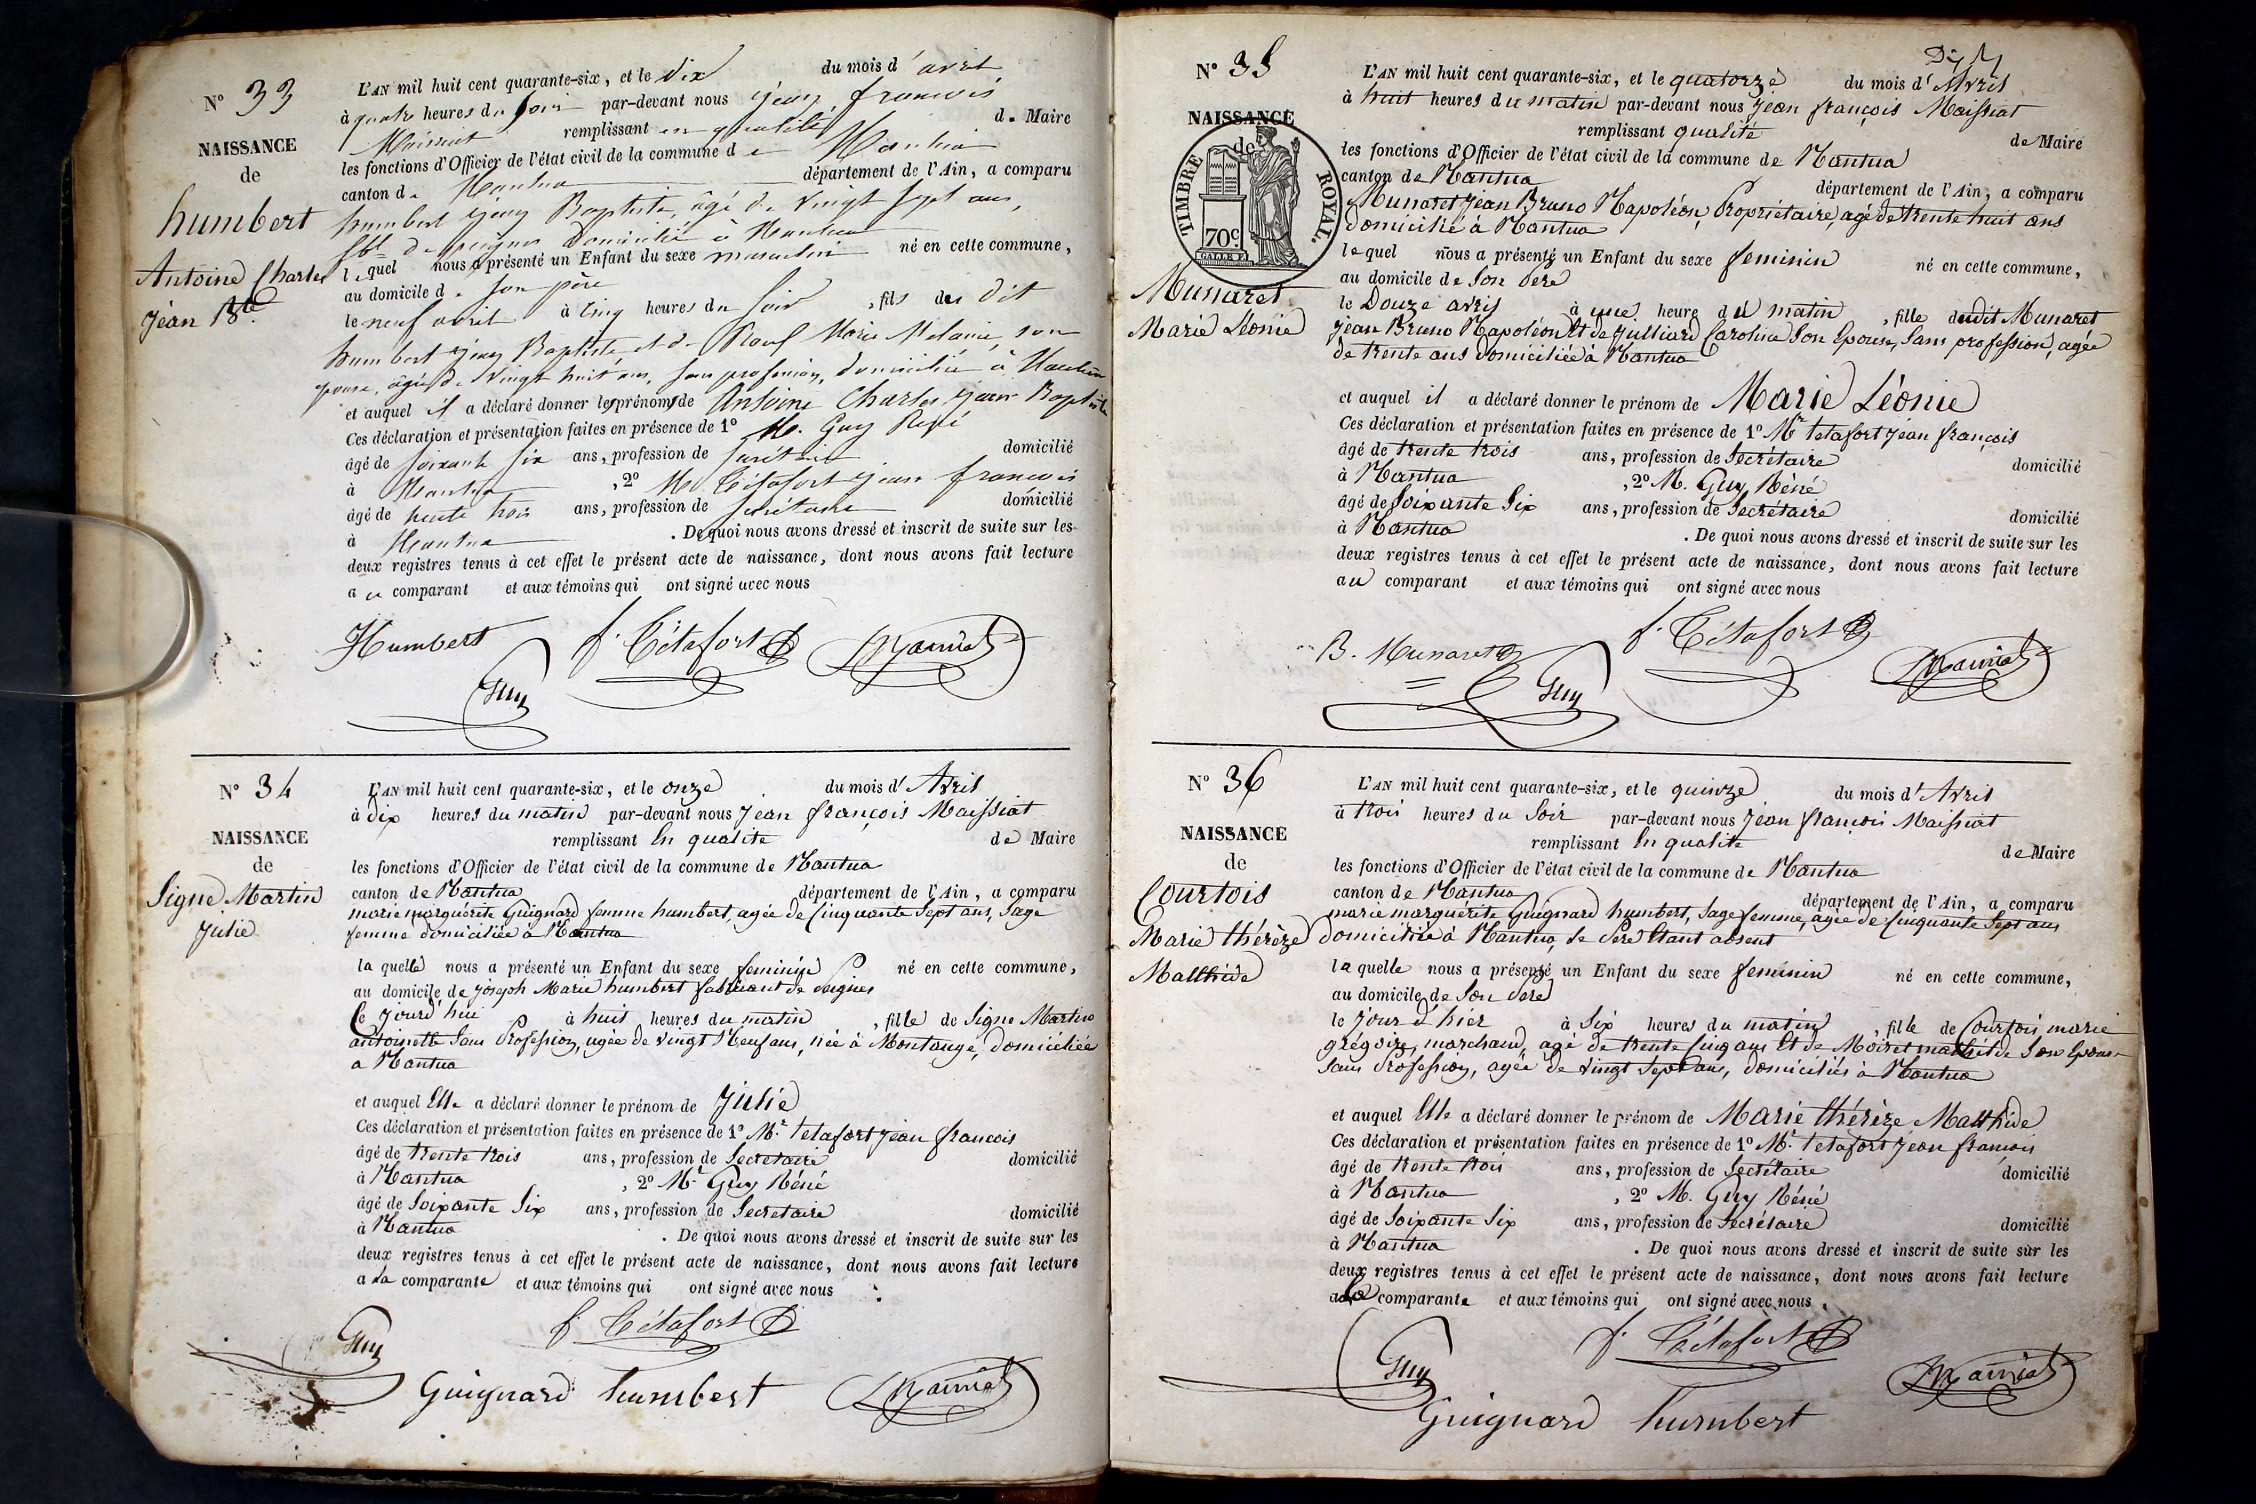 N° 33
NAISSANCE
de
humbert
Antoine Charles
jean Bte
L'AN mil huit cent quarante-six, et le dix du mois d'avril
à quatre heures du soir par-devant nous jean françois
Maissiat remplissant en qualité de Maire
les fonctions d'Officier de l'état civil de la commune de Nantua
canton de Nantua département de l'Ain, a comparu
humbert jean Baptiste, âgé de vingt sept ans,
fbt de peignes domicilié à Nantua
lequel nous a présenté un Enfant du sexe masculin né en cette commune,
au domicile de son père
le neuf avril à cinq heures du soir, fils du dit
humbert jean Baptiste et de Marie Melanie, son
épouse, âgée de vingt huit ans, sans profession, domiciliée à Nantua
et auquel il a déclaré donner les prénoms de Antoine Charles jean Baptiste
Ces déclaration et présentation faites en présence de 1° M. Guy René
âgé de soixante six ans, profession de secrétaire domicilié
à Nantua, 2° Mr Tétafort jean françois
âgé de trente trois ans, profession de secrétaire domicilié
à Nantua. De quoi nous avons dressé et inscrit de suite sur les
deux registres tenus à cet effet le présent acte de naissance, dont nous avons fait lecture
au comparant et aux témoins qui ont signé avec nous
Humbert f. Tétafort Maissiat
Guy
N° 34
NAISSANCE
de
Signe Martin
julie
L'AN mil huit cent quarante-six, et le onze du mois d'Avril
à dix heures du matin par-devant nous jean françois Maissiat
remplissant en qualité de Maire
les fonctions d'Officier de l'état civil de la commune de Nantua
canton de Nantua département de l'Ain, a comparu
marie marguérite Guignard femme humbert, agée de Cinquante Sept ans, Sage
femme domiciliée à Nantua
la quelle nous a présenté un Enfant du sexe feminin né en cette commune,
au domicile de joseph Marie humbert fabricant de peignes
le jourd'hui à huit heures du matin, fille de Signe Martin
antoinette Sans Profession, agée de vingt Neuf ans, née à Montange, domiciliée
a Nantua
et auquel Elle a déclaré donner le prénom de julie
Ces déclaration et présentation faites en présence de 1° Mr tetafort jean francois
âgé de trente trois ans, profession de Secretaire domicilié
à Nantua, 2° Mr Guy Réné
âgé de Soixante Six ans, profession de Secretaire domicilié
à Nantua. De quoi nous avons dressé et inscrit de suite sur les
deux registres tenus à cet effet le présent acte de naissance, dont nous avons fait lecture
a la comparante et aux témoins qui ont signé avec nous
Guy f. Tétafort
Guignard humbert Maissiat
N° 35
NAISSANCE
de
TIMBRE ROYAL.
70c
Munaret
Marie Léonie
L'AN mil huit cent quarante-six, et le quatorze du mois d'Avril
à huit heures du matin par-devant nous jean françois Maissiat
remplissant qualité de Maire
les fonctions d'Officier de l'état civil de la commune de Nantua
canton de Nantua département de l'Ain, a comparu
Munaret jean Bruno Napoléon, Propriétaire, agé de trente huit ans
domicilié à Nantua
lequel nous a présenté un Enfant du sexe feminin né en cette commune,
au domicile de Son Pere
le Douze avril à une heure du matin, fille dudit Munaret
jean Bruno Napoléon Et de julliard Caroline Son Epouse, Sans profession, agée
de trente ans domiciliée à Nantua
et auquel il a déclaré donner le prénom de Marie Léonie
Ces déclaration et présentation faites en présence de 1° Mr tetafort jean françois
âgé de trente trois ans, profession de Secrétaire domicilié
à Nantua, 2° M. Guy Réné
âgé de Soixante Six ans, profession de Secretaire domicilié
à Nantua. De quoi nous avons dressé et inscrit de suite sur les
deux registres tenus à cet effet le présent acte de naissance, dont nous avons fait lecture
au comparant et aux témoins qui ont signé avec nous
B. Munaret f. Tétafort Maissiat
Guy
N° 36
NAISSANCE
de
Courtois
Marie thérèze
Malthide
L'AN mil huit cent quarante-six, et le quinze du mois d'Avril
à trois heures du Soir par-devant nous jean françois Maissiat
remplissant En qualité de Maire
les fonctions d'Officier de l'état civil de la commune de Nantua
canton de Nantua département de l'Ain, a comparu
marie marguérite Guignard humbert, Sage femme, agée de Cinquante Sept ans
domiciliée à Nantua, le Pere Etant absent
la quelle nous a présenté un Enfant du sexe feminin né en cette commune,
au domicile de Son Pere
le jour d'hier à Six heures du matin, fille de Courtois marie
grégoire, marchand, agé de trente Cinq ans Et de Moiret mathilde Son Epouse
Sans Profession, agée de vingt Sept ans, domiciliés à Nantua
et auquel Elle a déclaré donner le prénom de Marie thérèze Malthide
Ces déclaration et présentation faites en présence de 1° Mr tetafort jean francois
âgé de trente trois ans, profession de Secrétaire domicilié
à Nantua, 2° M. Guy Réné
âgé de Soixante Six ans, profession de Secrétaire domicilié
à Nantua. De quoi nous avons dressé et inscrit de suite sur les
deux registres tenus à cet effet le présent acte de naissance, dont nous avons fait lecture
a la comparante et aux témoins qui ont signé avec nous.
Guy f. Tétafort Maissiat
Guignard humbert